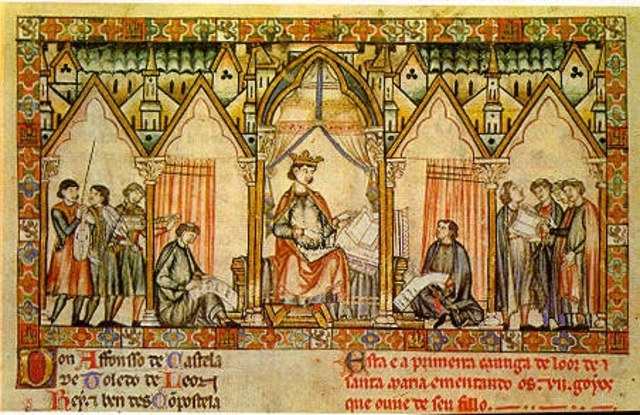 Don Affonsso de Castela
de Toledo de Leon
Rey. e ben des Cõpostela
Esta e a primeira cantiga de loor de
santa maria ementando os .vii. goyos
que ouue de seu fillo.